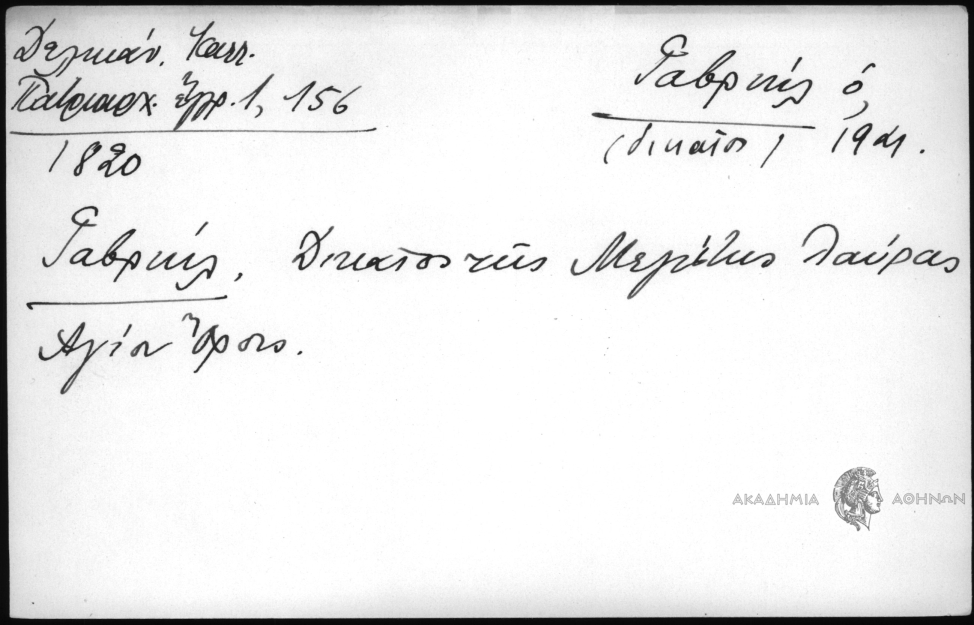 Δελικάν. Καλλ.
Πατριαρχ. ἔγγρ. 1, 156
1820
Γαβριήλ ὁ,
(δικαῖος) 19ος.
Γαβριήλ, Δικαῖος τῆς Μεγίστης Λαύρας
Ἁγίου Ὄρους.
ΑΚΑΔΗΜΙΑ ΑΘΗΝΩΝ